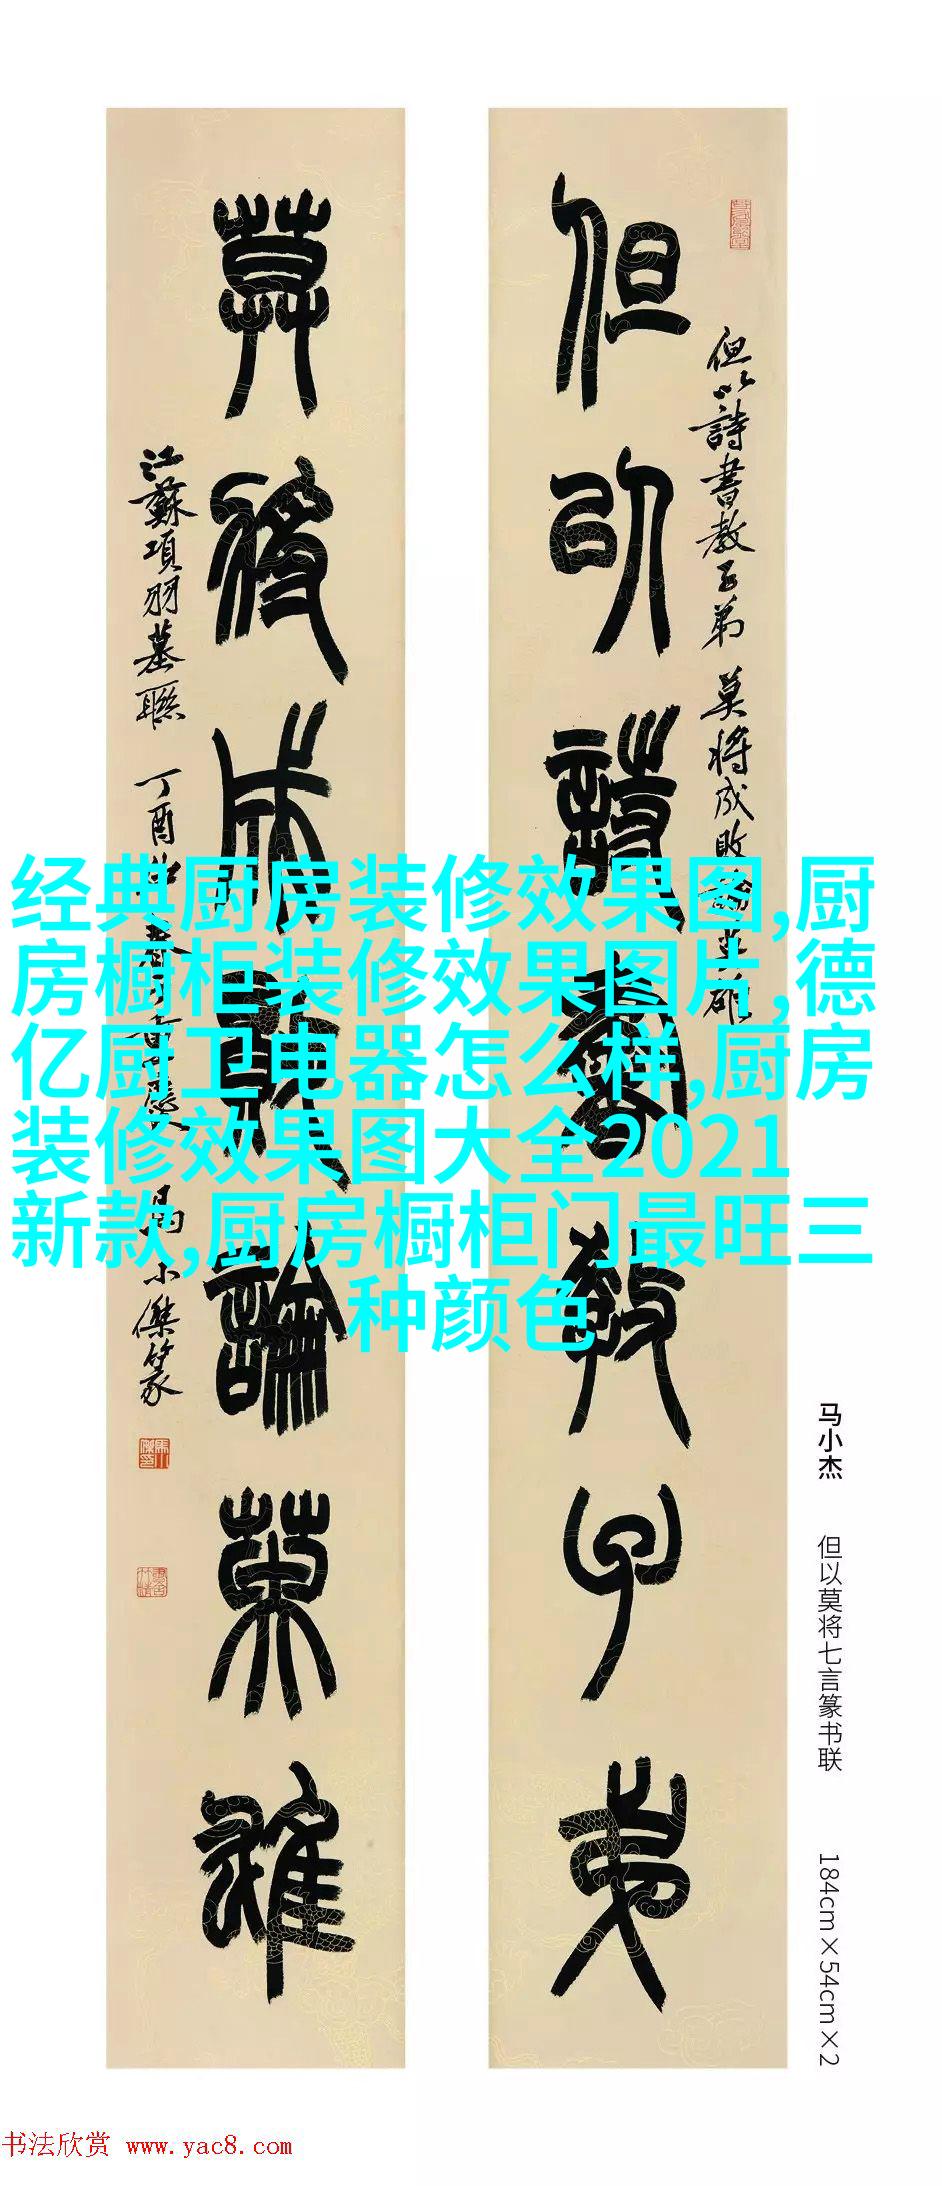 但以詩書教子弟
但以詩書教子弟 莫將成敗論英雄
莫將成敗論英雄
江蘇項羽墓聯 丁酉
馬小傑篆
经典厨房装修效果图,厨
房橱柜装修效果图片,德
亿厨卫电器怎么样,厨房
装修效果图大全2021
新款,厨房橱柜门最旺三
种颜色
马小杰 但以莫将七言篆书联 184cm×54cm×2
书法欣赏 www.yac8.com